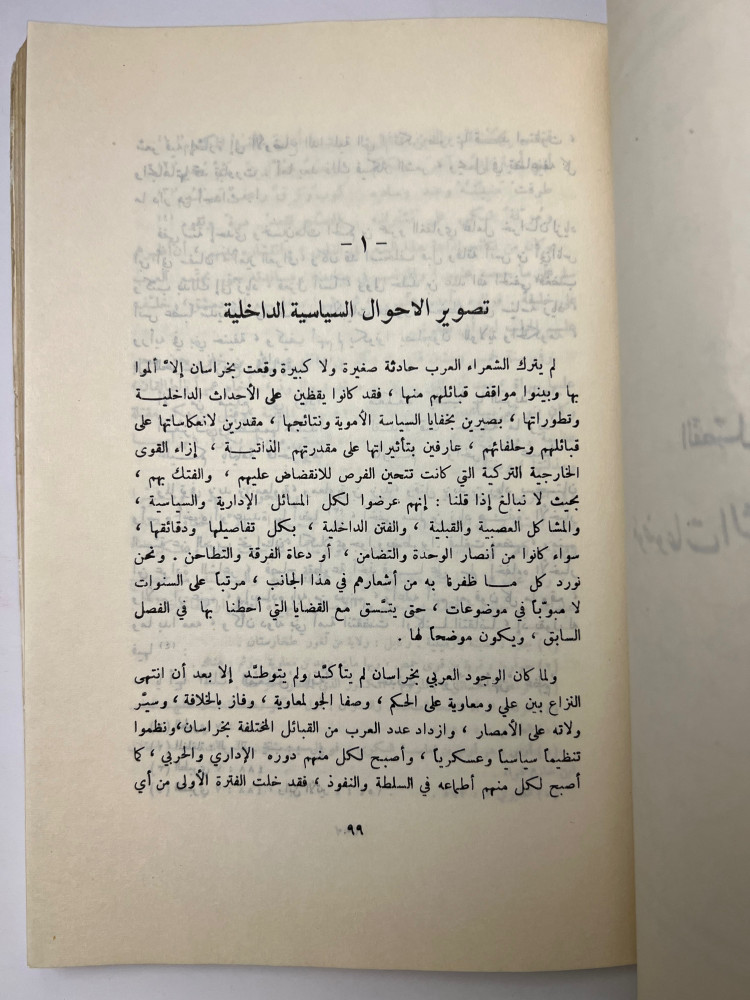 - ١ -
تصوير الاحوال السياسية الداخلية
لم يترك الشعراء العرب حادثة صغيرة ولا كبيرة وقعت بخراسان إلاّ ألموا
بها وبينوا مواقف قبائلهم منها ، فقد كانوا يقظين على الأحداث الداخليــة
وتطوراتها ، بصيرين بخفايا السياسة الأموية ونتائجها ، مقدرين لانعكاساتها على
قبائلهم وحلفائهم ، عارفين بتأثيراتها على مقدرتهم الذاتيــة ، إزاء القوى
الخارجية التركية التي كانت تتحين الفرص للانقضاض عليهم ، والفتك بهم ،
بحيث لا نبالغ إذا قلنا : إنهم عرضوا لكل المسائل الإدارية والسياسية ،
والمشاكل العصبية والقبلية ، والفتن الداخلية ، بكل تفاصيلها ودقائقها ،
سواء كانوا من أنصار الوحدة والتضامن ، أو دعاة الفرقة والتطاحن . ونحن
نورد كل مــا ظفرنا به من أشعارهم في هذا الجانب ، مرتباً على السنوات
لا مبوّباً في موضوعات ، حتى يتّسق مع القضايا التي أحطنا بها في الفصل
السابق ، ويكون موضحاً لها .
ولما كان الوجود العربي بخراسان لم يتأكّد ولم يتوطّد إلا بعد أن انتهى
النزاع بين علي ومعاوية على الحكم ، وصفا الجو لمعاوية ، وفاز بالخلافة ، وسيّر
ولاته على الأمصار ، وازداد عدد العرب من القبائل المختلفة بخراسان،ونظموا
تنظيماً سياسياً وعسكرياً ، وأصبح لكل منهم دوره الإداري والحربي ، كما
أصبح لكل منهم أطماعه في السلطة والنفوذ ، فقد خلت الفترة الأولى من أي
٩٩